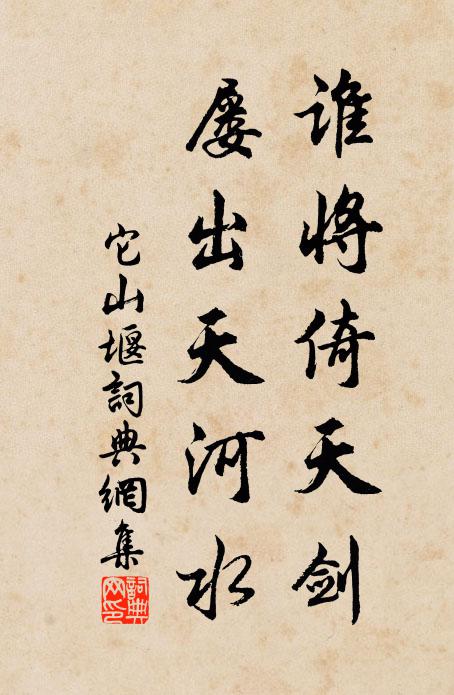 谁将倚天剑
屡出天河水
它山堰詞典網集
詞典网印